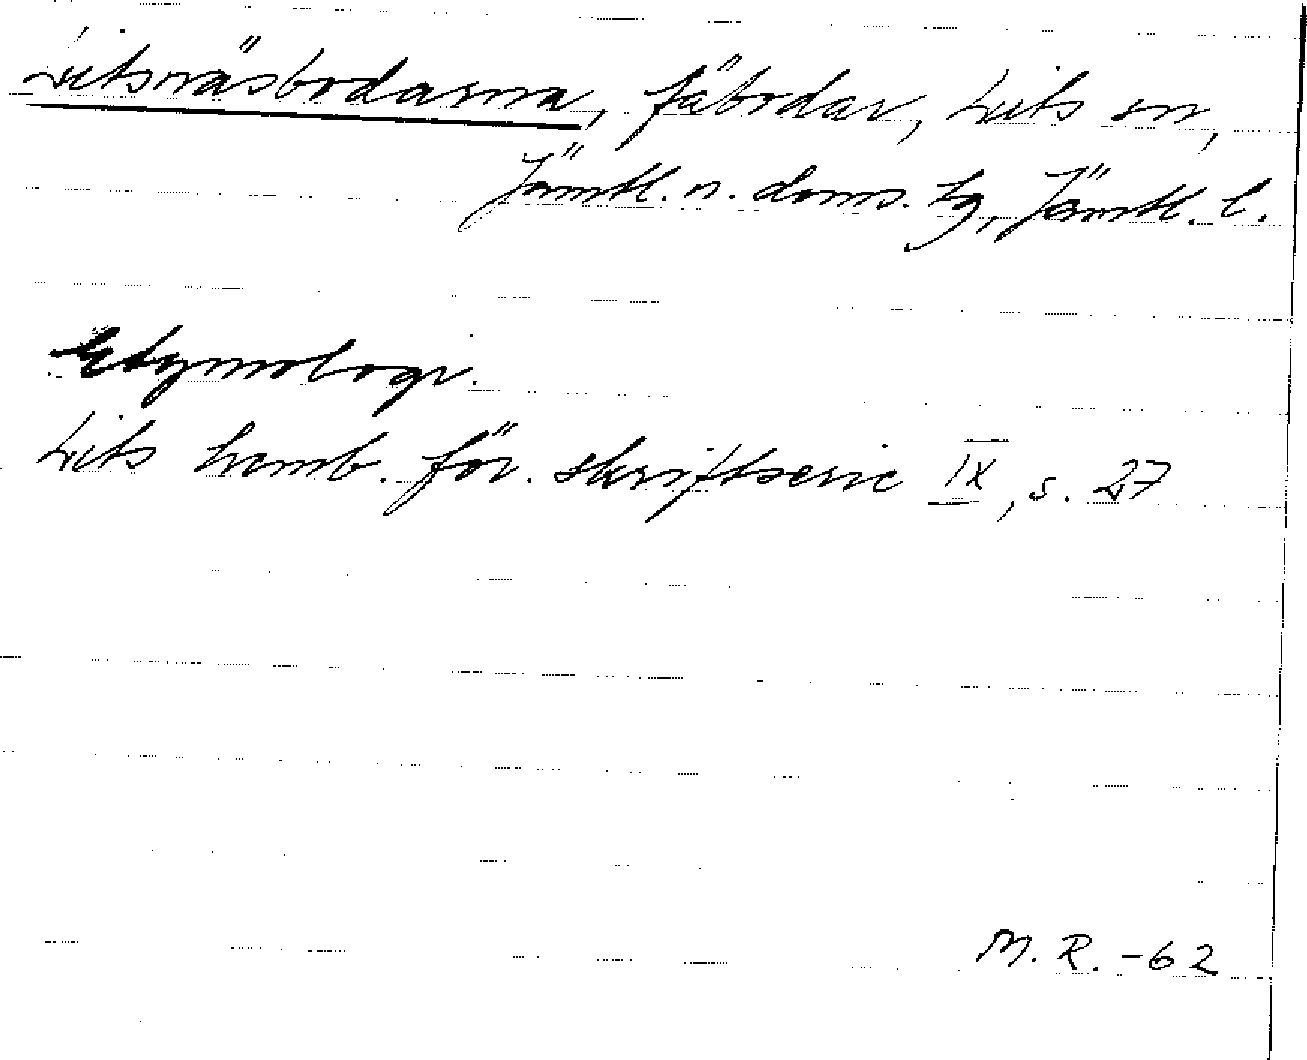 Litsnäsbodarna, fäbodar, Lits sn,
Jämtl. n. doms. tg, Jämtl. l.
Etymologi.
Lits hemb. för. skriftserie IX, s. 27
M. R. -62